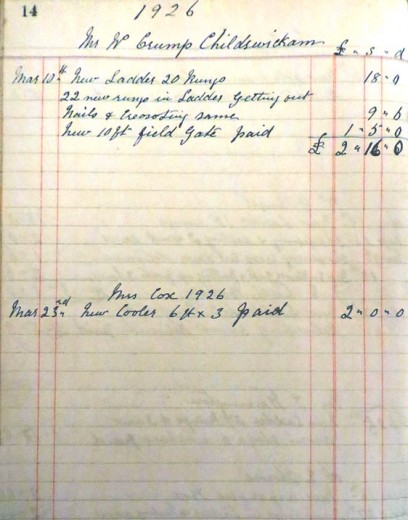 14
1926
Mr W Crump Childswickham £ " s " d
Mar 10th New Ladder 20 Rungs 18 " 0
22 new rungs in Ladder Getting out
Nails & Creosoting same 9 " 6
New 10ft field Gate paid 1 " 5 " 0
£ 2 " 16 " 0
Mrs Cox 1926
Mar 23rd New Cooler 6 ft x 3 paid 2 " 0 " 0